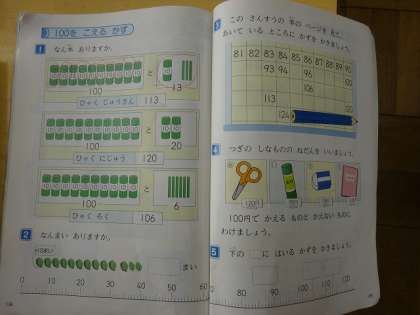 100を こえる かず
1 なん本 ありますか。
100 と 13
ひゃく じゅうさん 113
100 と 20
ひゃく にじゅう 120
100 と 6
ひゃく ろく 106
2 なんまい ありますか。
まい
0 10 20 30 40 50 60
3 この さんすうの 本の ページを 見て、
あいて いる ところに かずを かきましょう。
81 82 83 84 85 86 87 88 89 90
93 94 96
106
113
120
124
4 つぎの しなものの ねだんを いいましょう。
100円で かえる ものと かえない ものに
わけましょう。
5 下の に はいる かずを かきましょう。
80 90 100 110 120